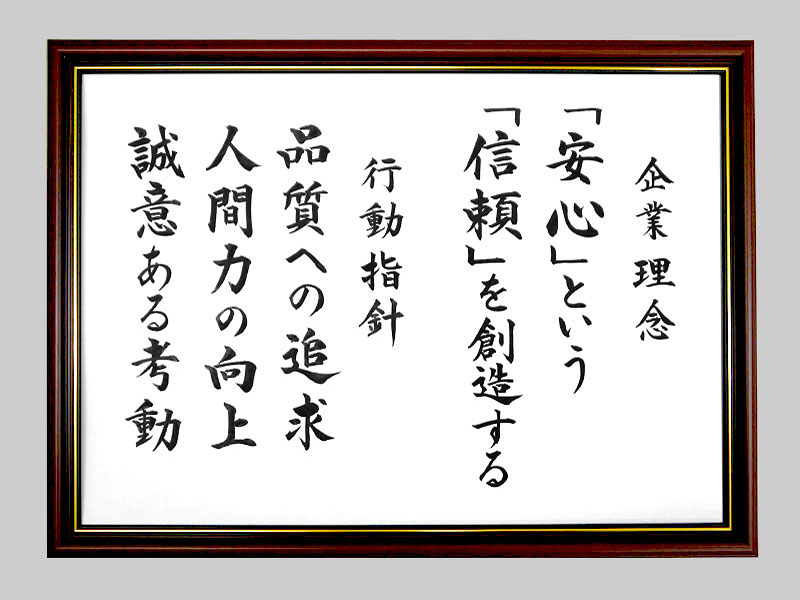 企業理念
「安心」という
「信頼」を創造する
行動指針
品質への追求
人間力の向上
誠意ある考動